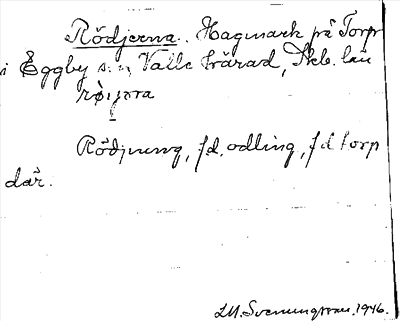 Rödjerna. Hagmark på Torp
i Eggby s:n, Valle härad, Skb. län
Rödjning, f.d. odling, f d torp
där.
S.M. Svenungsson 1946.